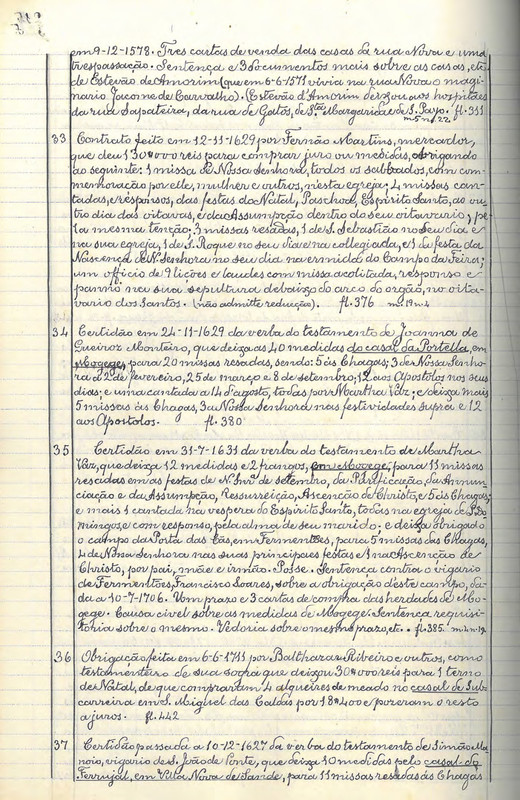 em 9-12-1578. Tres cartas de venda das casas da rua Nova e uma
trespassação. Sentença e 3 documentos mais sobre as casas, etc.
de Estevão de Amorim (que em 6-6-1571 vivia na rua Nova o magi-
nario Jacome de Carvalho). (Estevão d'Amorim deixou aos hospitaes
da rua Sapateira, da rua de Gatos, de Sta Margarida e de S. Payo. fl. 311
m. 5 n. 22
33 Contrato feito em 12-11-1629 por Fernão Martins, mercador,
que deu 130$000 reis para comprar juro ou medidas, obrigando
ao seguinte: 1 missa de Nossa Senhora, todos os sabbados, com com-
menhoração por elle, mulher e outros, nesta egreja; 4 missas can-
tadas, e responsos, das festas do Natal, Paschoa, Espirito Santo, ao ou-
tro dia das oitavas, e da Assumpção dentro do seu oitavario, pe-
la mesma tenção; 3 missas resadas, 1 de S. Sebastião no seu dia e
na sua egreja, 1 de S. Roque no seu dia e na collegiada, e 1 da festa da
Nascença de N. Senhora no seu dia na ermida do Campo da Feira;
um officio de 9 licões e laudes com missa acolitada, responso e
panno na sua sepultura debaixo do arco do orgão, no oita-
vario dos Santos. (não admitte reducção). fl. 376 m. 19 n. 4
34 Certidão em 24-11-1629 da verba do testamento de Joanna de
Queiroz Monteiro, que deixa as 40 medidas do casal da Portella, em
Mogege, para 20 missas resadas, sendo: 5 ás Chagas; 3 de Nossa Senho-
ra a 2 de fevereiro, 25 de março e 8 de setembro; 12 aos Apostolos nos seus
dias; e uma cantada a 14 d'agosto, todas por Martha Vaz; e deixa mais
5 missas ás Chagas, 3 a Nossa Senhora nas festividades supra e 12
aos Apostolos. fl. 380
35 Certidão em 31-7-1631 da verba do testamento de Martha
Vaz, que deixa 12 medidas e 2 frangos, em Mogege, para 11 missas
rescadas em as festas de N. Snrª de setembro, da Purificação, da Annun-
ciação e da Assumpção, Ressurreição, Ascenção de Christo, e 5 ás Chagas;
e mais 1 cantada na vespera do Espirito Santo, todas na egreja de S. Do-
mingos, e com responso, pela alma de seu marido; e deixa obrigado
o campo da Porta das Eãs, em Fermentões, para 5 missas das Chagas,
4 de Nossa Senhora nas suas principaes festas e 1 na Ascenção de
Christo, por pai, mãe e irmão. Posse. Sentença contra o vigario
de Fermentões, Francisco Soares, sobre a obrigação deste campo, da-
da a 10-7-1706. Um prazo e 3 cartas de compra das herdades de Mo-
gege. Causa civel sobre as medidas de Mogege. Sentença requisi-
toria sobre o mesmo. Vedoria sobre o mesmo prazo, etc. . fl. 385.
36 Obrigação feita em 6-6-1711 por Balthazar Ribeiro e outros, como
testamenteiro de sua sogra que deixou 30$000 reis para 1 terno
de Natal, de que compraram 4 alqueires de meado no casal de Sub-
carreira em S. Miguel das Caldas por 18$400 e pozeram o resto
a juros. fl. 442
37 Certidão passada a 10-12-1627 da verba do testamento de Simão Ma-
noio, vigario de S. João de Ponte, que deixa 10 medidas pelo casal do
Ferrujal, em Villa Nova de Sande, para 11 missas resadas ás Chagas